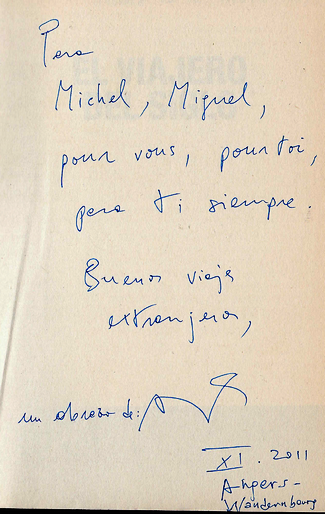 Para
EL VIAJERO
DEL SIGLO
Michel, Miguel,
pour vous, pour toi,
para ti siempre.
Buenos viajes
extranjeros,
un abrazo de:
XI. 2011
Angers-
Wandernburgo